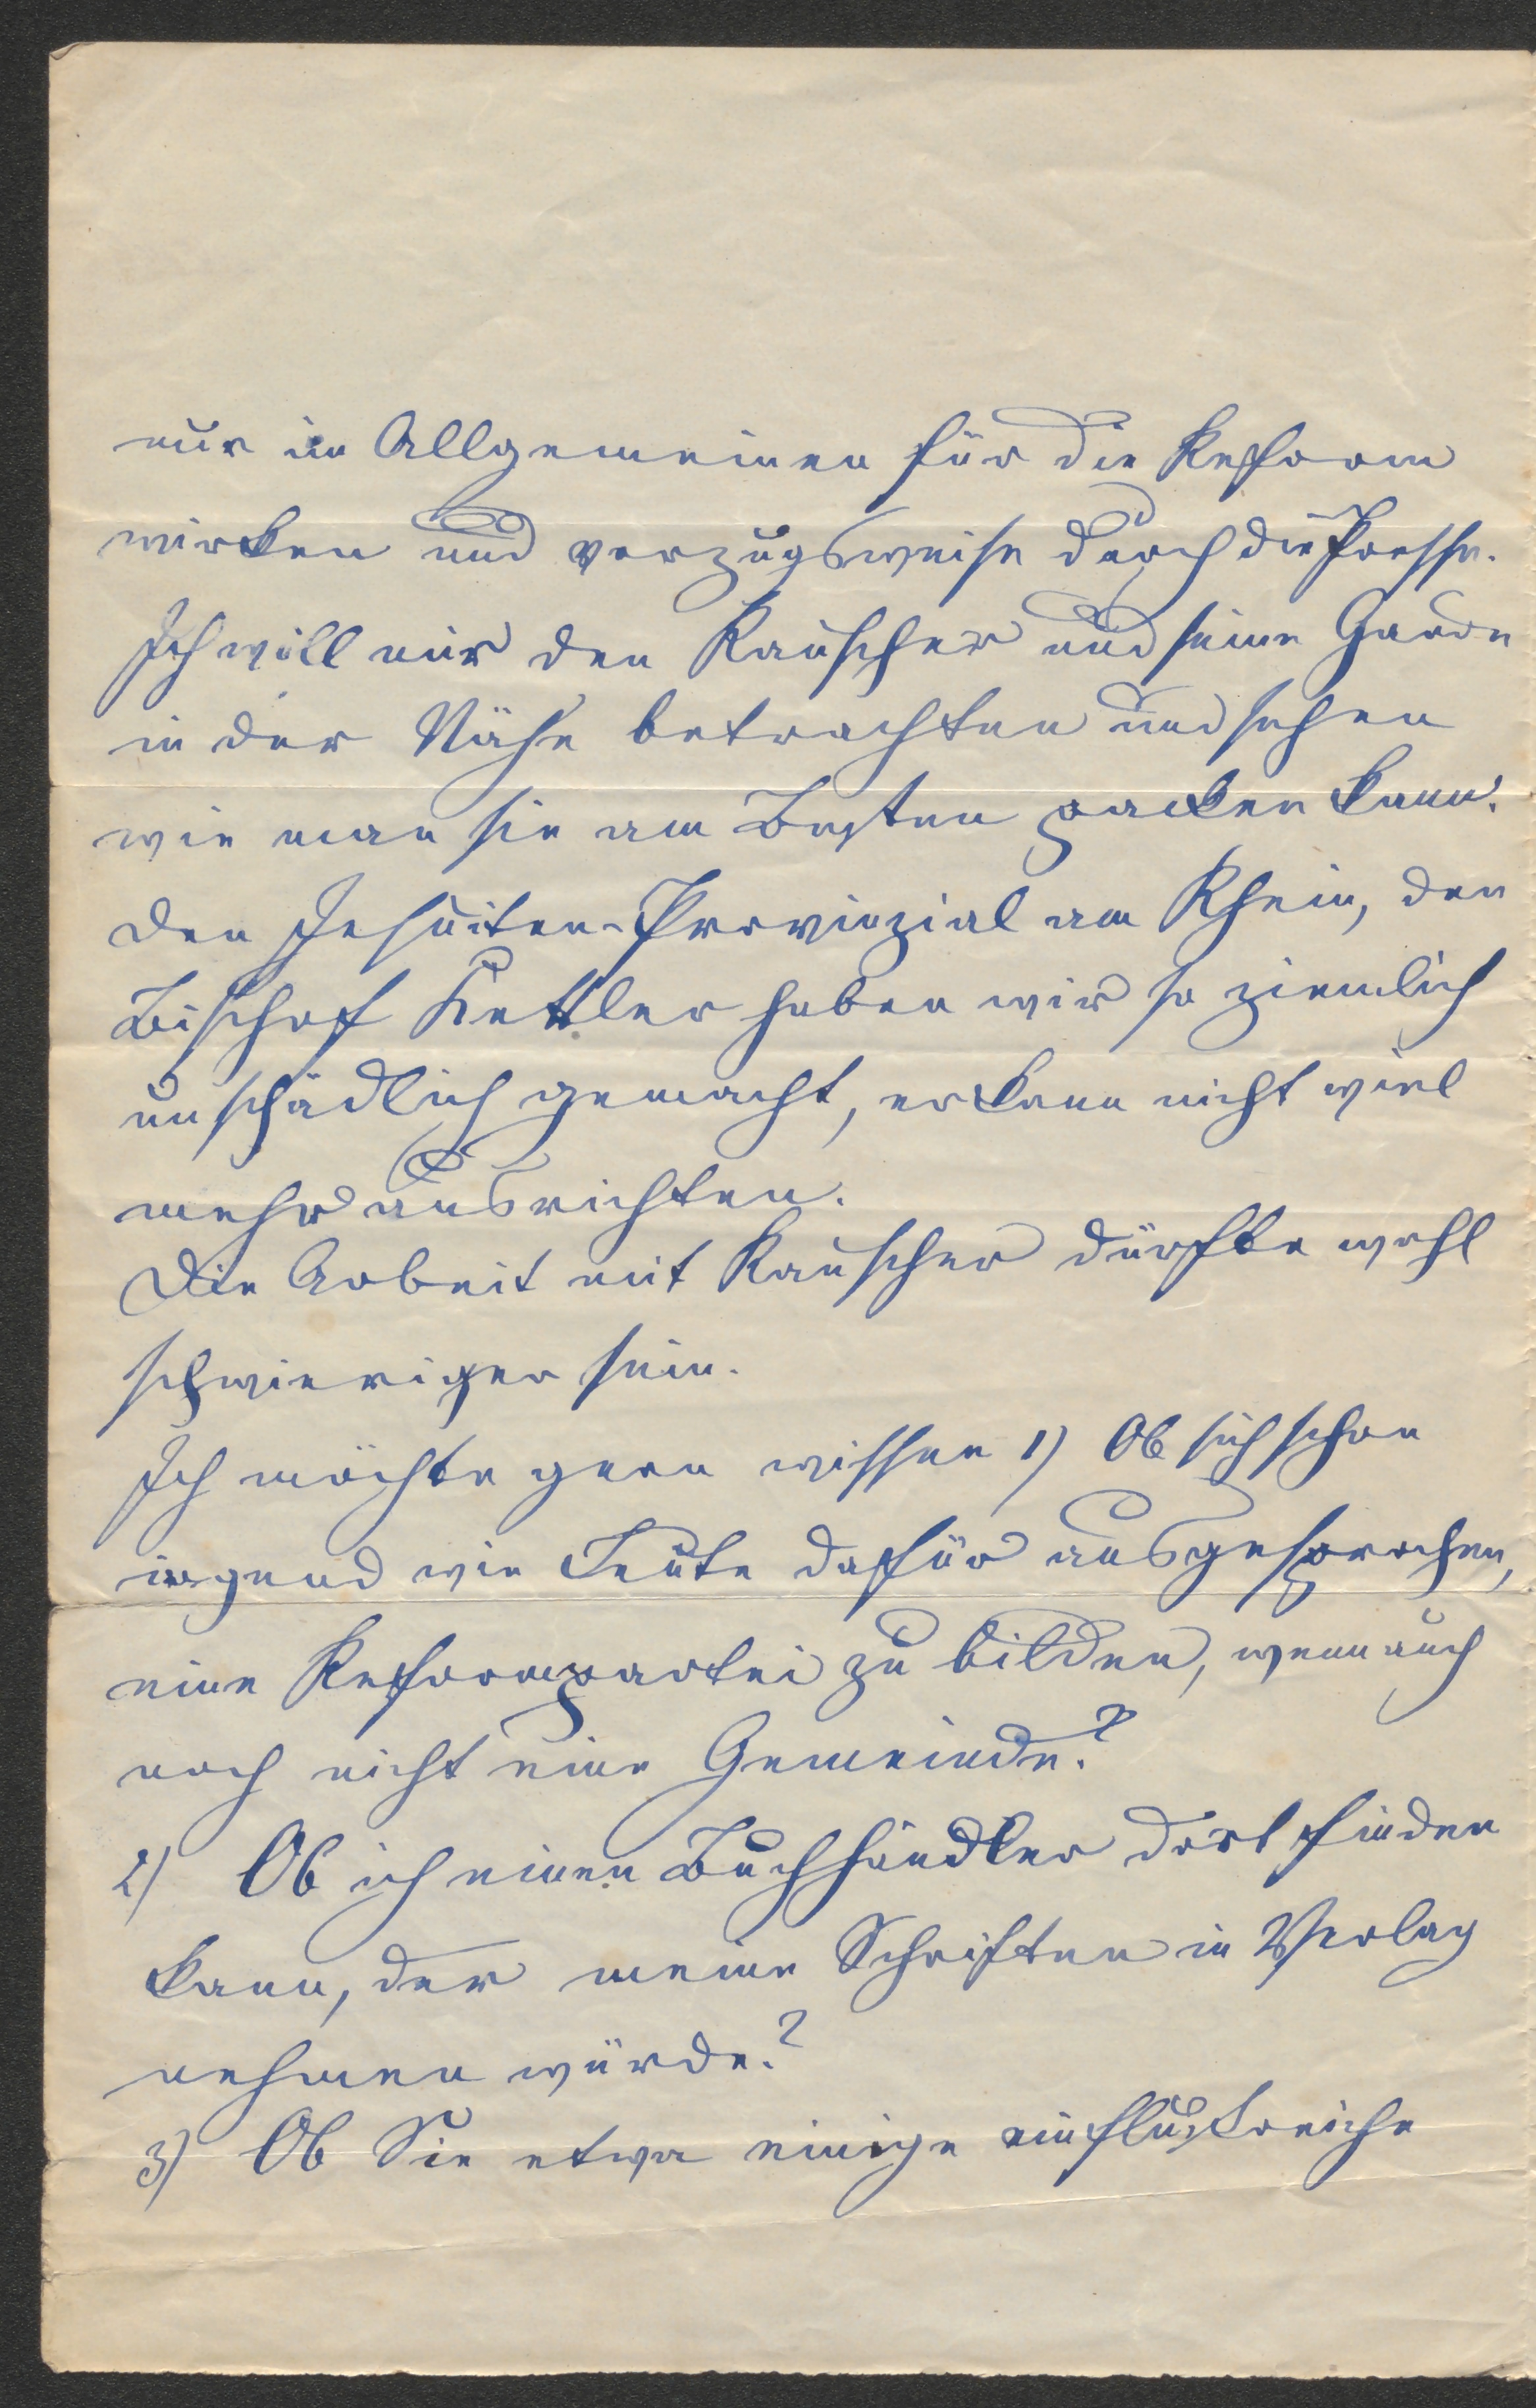 nur im Allgemeinen für die Reform
wirken und vorzugsweise durch die Presse.
Ich will mir den Rauscher und seine Garde
in der Nähe betrachten und sehen
wie man sie am Besten packen kann.
Den Jesuiten-Provinzial am Rhein, den
Bischof Kettler haben wir so ziemlich
unschädlich gemacht, er kann nicht viel
mehr ausrichten.
Die Arbeit mit Rauscher dürfte wohl
schwieriger sein.
Ich möchte gern wissen 1) Ob sich schon
irgend wie Leute dafür ausgesprochen,
eine Reformpartei zu bilden, wenn auch
noch nicht eine Gemeinde?
2) Ob ich einen Buchhändler dort finden
kann, der meine Schriften in Verlag
nehmen würde?
3) Ob Sie etwa einige einflußreiche